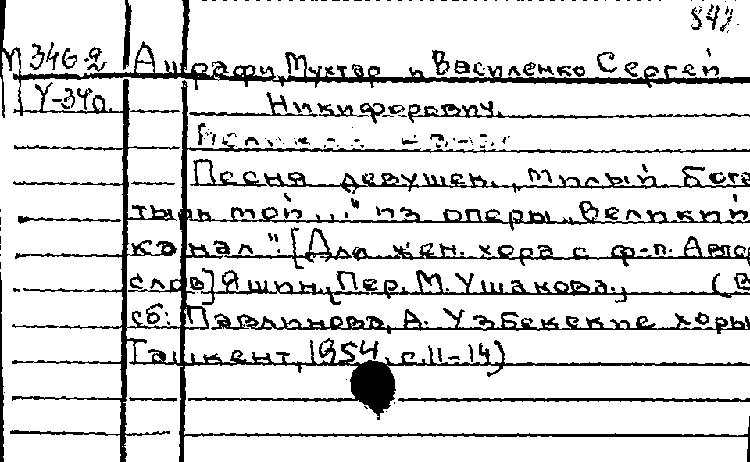 842
М 346-2 Ашрафи, Мухтар и Василенко Сергей
У-340. Никифорович.
Песня девушек „Милый бога
тырь мой..." из оперы „Великий
канал". [Для жен. хора с ф-п. Автор
слов] Яшин, [Пер. М. Ушакова., (В
сб: Павлинова, А. Узбекские хоры
Ташкент, 1954. с. 11-14)